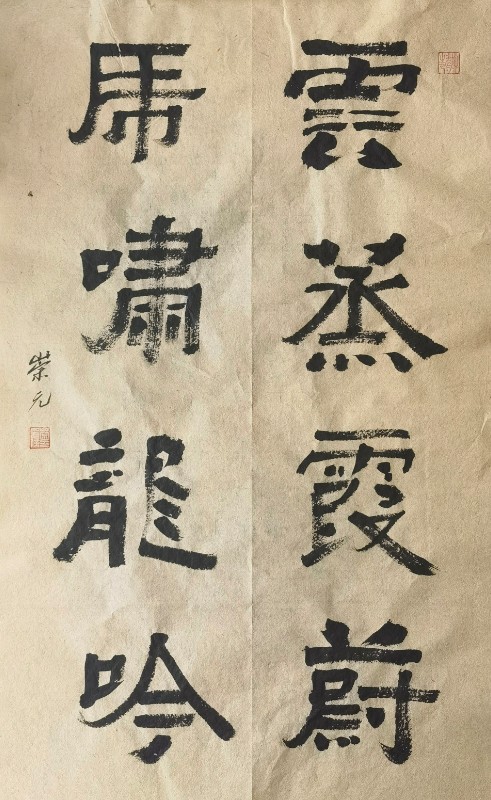 雲蒸霞蔚
虎嘯龍吟
崇元